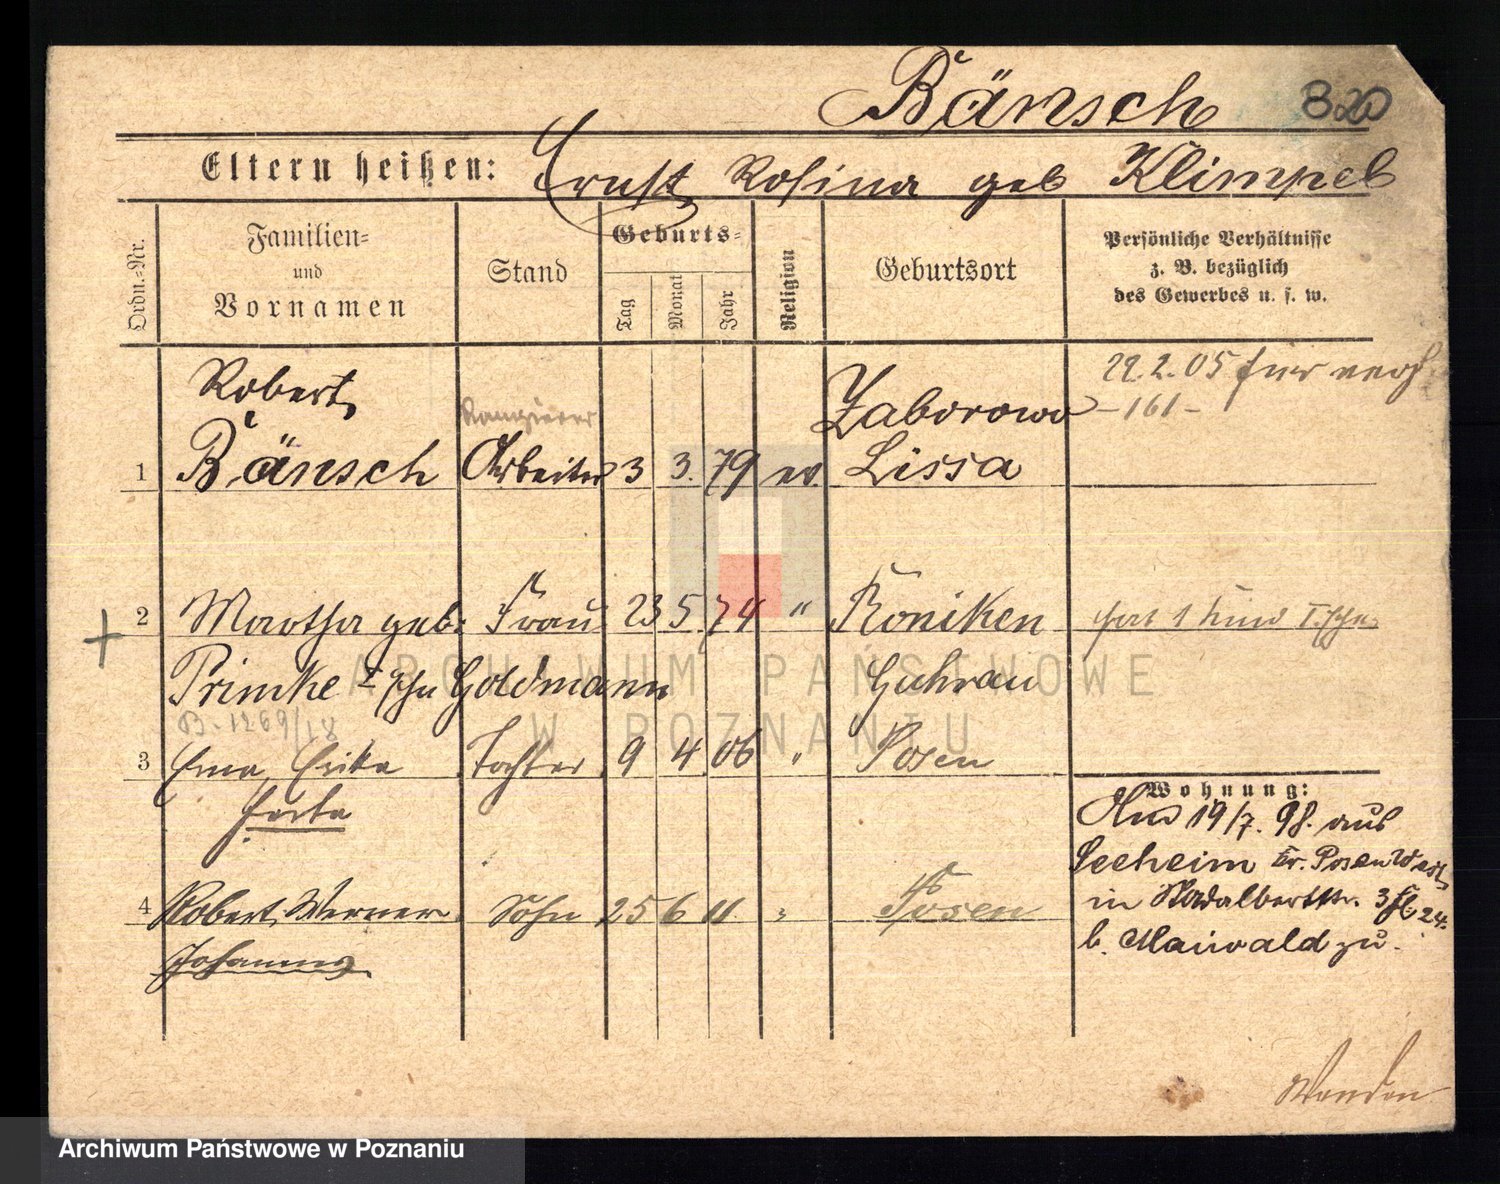 Bänsch 320
Eltern heißen: Ernst, Rosina geb Klimpel
Ordn.-Nr.
Familien-
und
Vornamen
Stand
Geburts-
Tag
Monat
Jahr
Religion
Geburtsort
Persönliche Verhältnisse
z. B. bezüglich
des Gewerbes u. s. w.
Robert
Rangierer
Zaborowo
22.2.05 für
-161-
1 Bänsch Arbeiter 3 3. 79 ev. Lissa
2 Martha geb. Frau 23 5 74 " Roniken hat 1 Kind I. Ehe
Primke I Ehe Goldmann Guhrau
B-1269/18
3 Erna, Erika Tochter 9 4 06 " Posen
Herta
Wohnung:
19/7. 98. aus
Seeheim Kr. Posen West
in 3 24.
b. Maiwald zu.
4 Robert, Werner Sohn 25 6 11 " Posen
Johannes
Wenden
ARCHIWUM PAŃSTWOWE
W POZNANIU
Archiwum Państwowe w Poznaniu